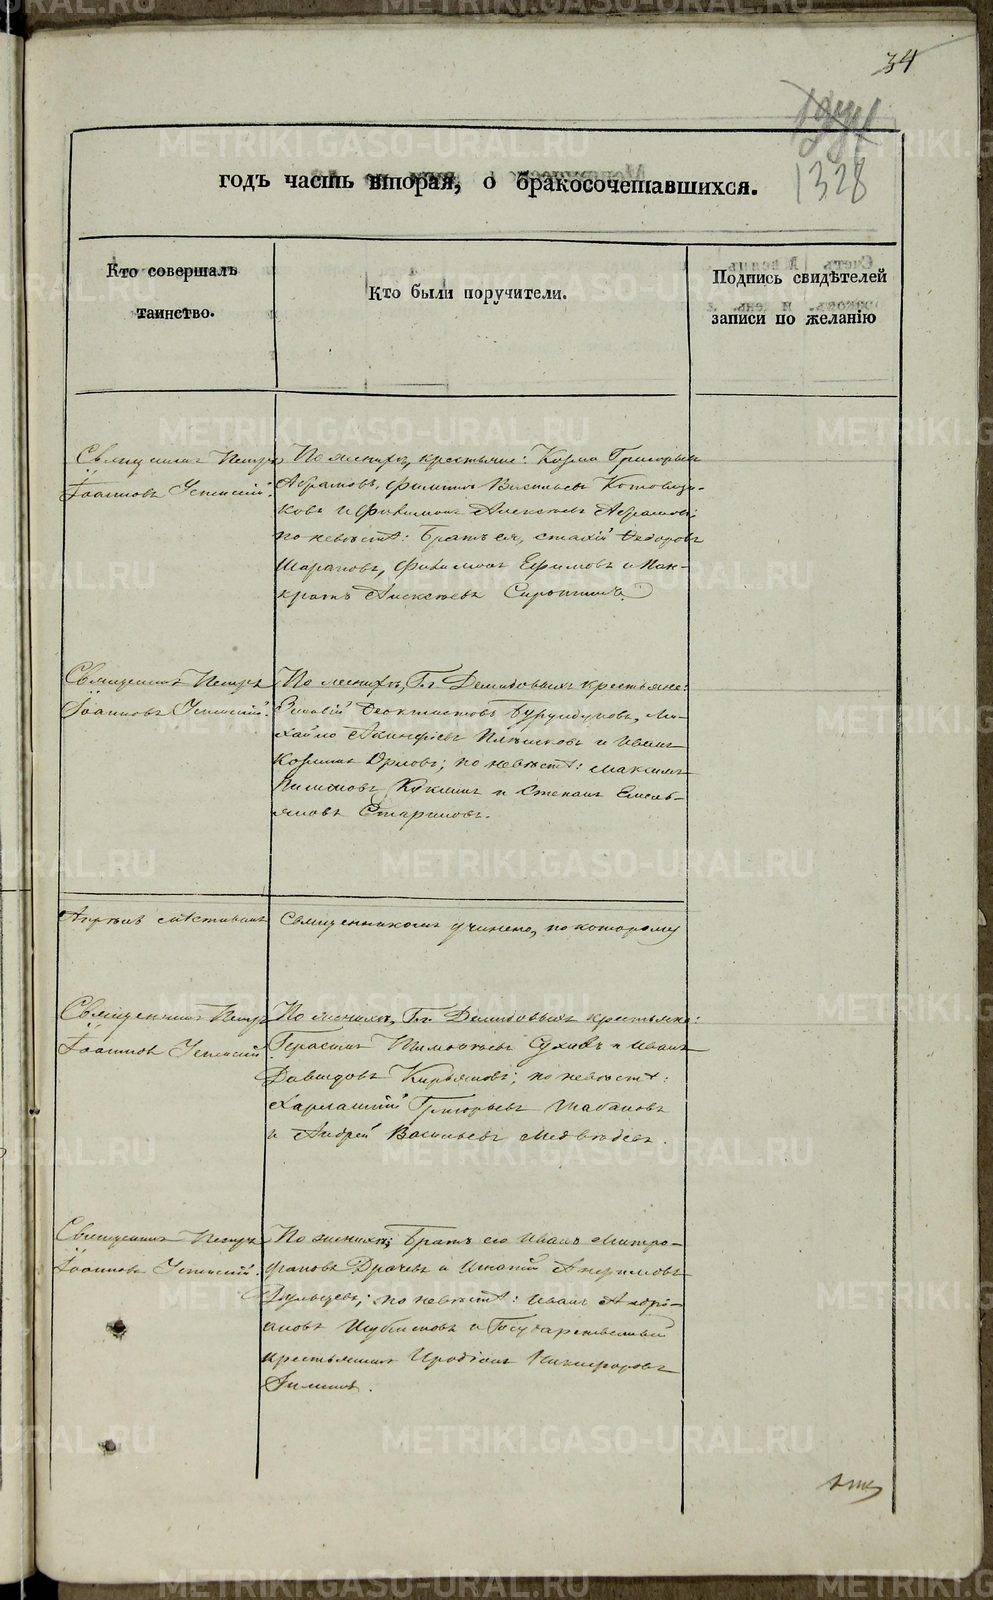 34
1328
годъ часть вторая, о бракосочетавшихся.
Кто совершалъ
таинство.
Кто были поручители.
Подпись свидѣтелей
записи по желанію
Священникъ Петръ
Іоанновъ Успенскій.
По женихѣ, крестьяне: Козма Григорьевъ
Абрамовъ, Филиппъ Васильевъ
ковъ и Филимонъ Алексѣевъ Абрамовъ;
по невѣстѣ: Братъ ея, Ѳедоровъ
Шараповъ, Филимонъ Ефимовъ и Пан-
кратъ Алексѣевъ
Священникъ Петръ
Іоанновъ Успенскій.
По женихѣ, Гг. Демидовыхъ крестьяне:
Зиновій Ѳеоктистовъ Бурундуковъ, Ми-
хайло Акинфіевъ и Иванъ
Козминъ Орловъ; по невѣстѣ: Максимъ
Филиповъ Кукшинъ и Степанъ Емель-
яновъ Стариковъ.
Священникомъ учинено, по которому
Священникъ Петръ
Іоанновъ Успенскій
По женихѣ, Гг. Демидовыхъ крестьяне:
Герасимъ Тимофѣевъ Суховъ и Иванъ
Давыдовъ Кирьяновъ; по невѣстѣ:
Харлампій Григорьевъ Шабановъ
и Андрей Васильевъ Медвѣдевъ.
Священникъ Петръ
Іоанновъ Успенскій.
По женихѣ, Братъ его Иванъ Митро-
фановъ Драчевъ и Игнатій
по невѣстѣ: Иванъ Андрі-
ановъ и Государственный
крестьянинъ Иродіонъ Никифоровъ
METRIKI.GASO-URAL.RU